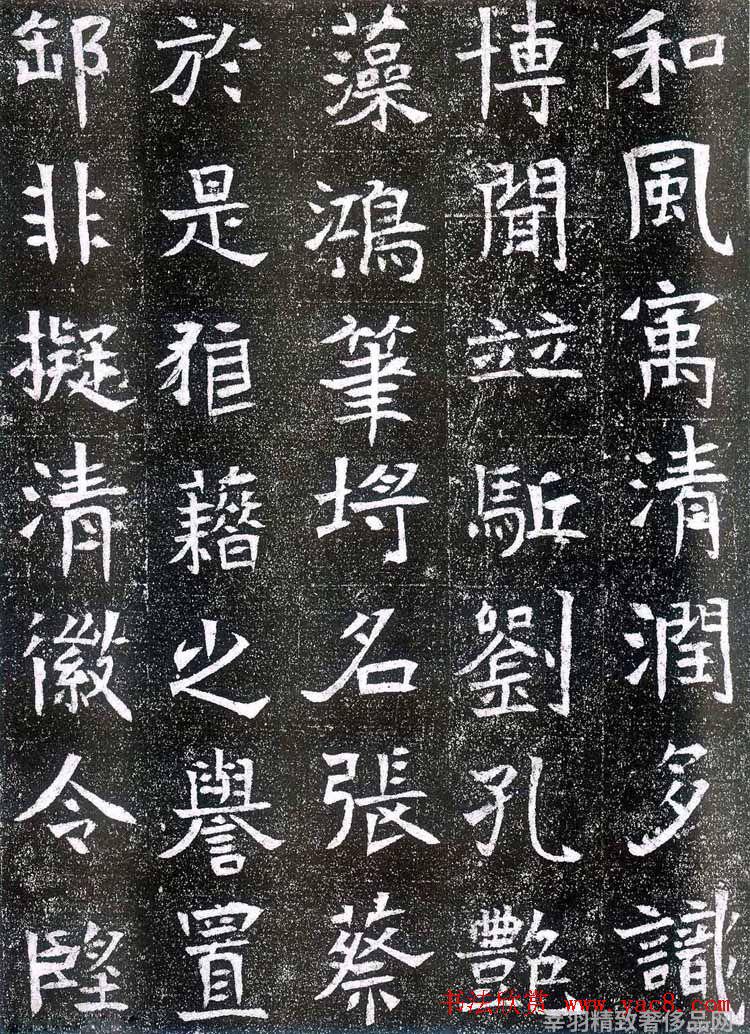 和風寓清潤多識
博聞竝駈劉孔艷
藻鴻筆埒名張蔡
於是狼藉之譽置
郵非擬清徽令朢
书法欣赏 www.yac8.com
羽精致奢侈品网